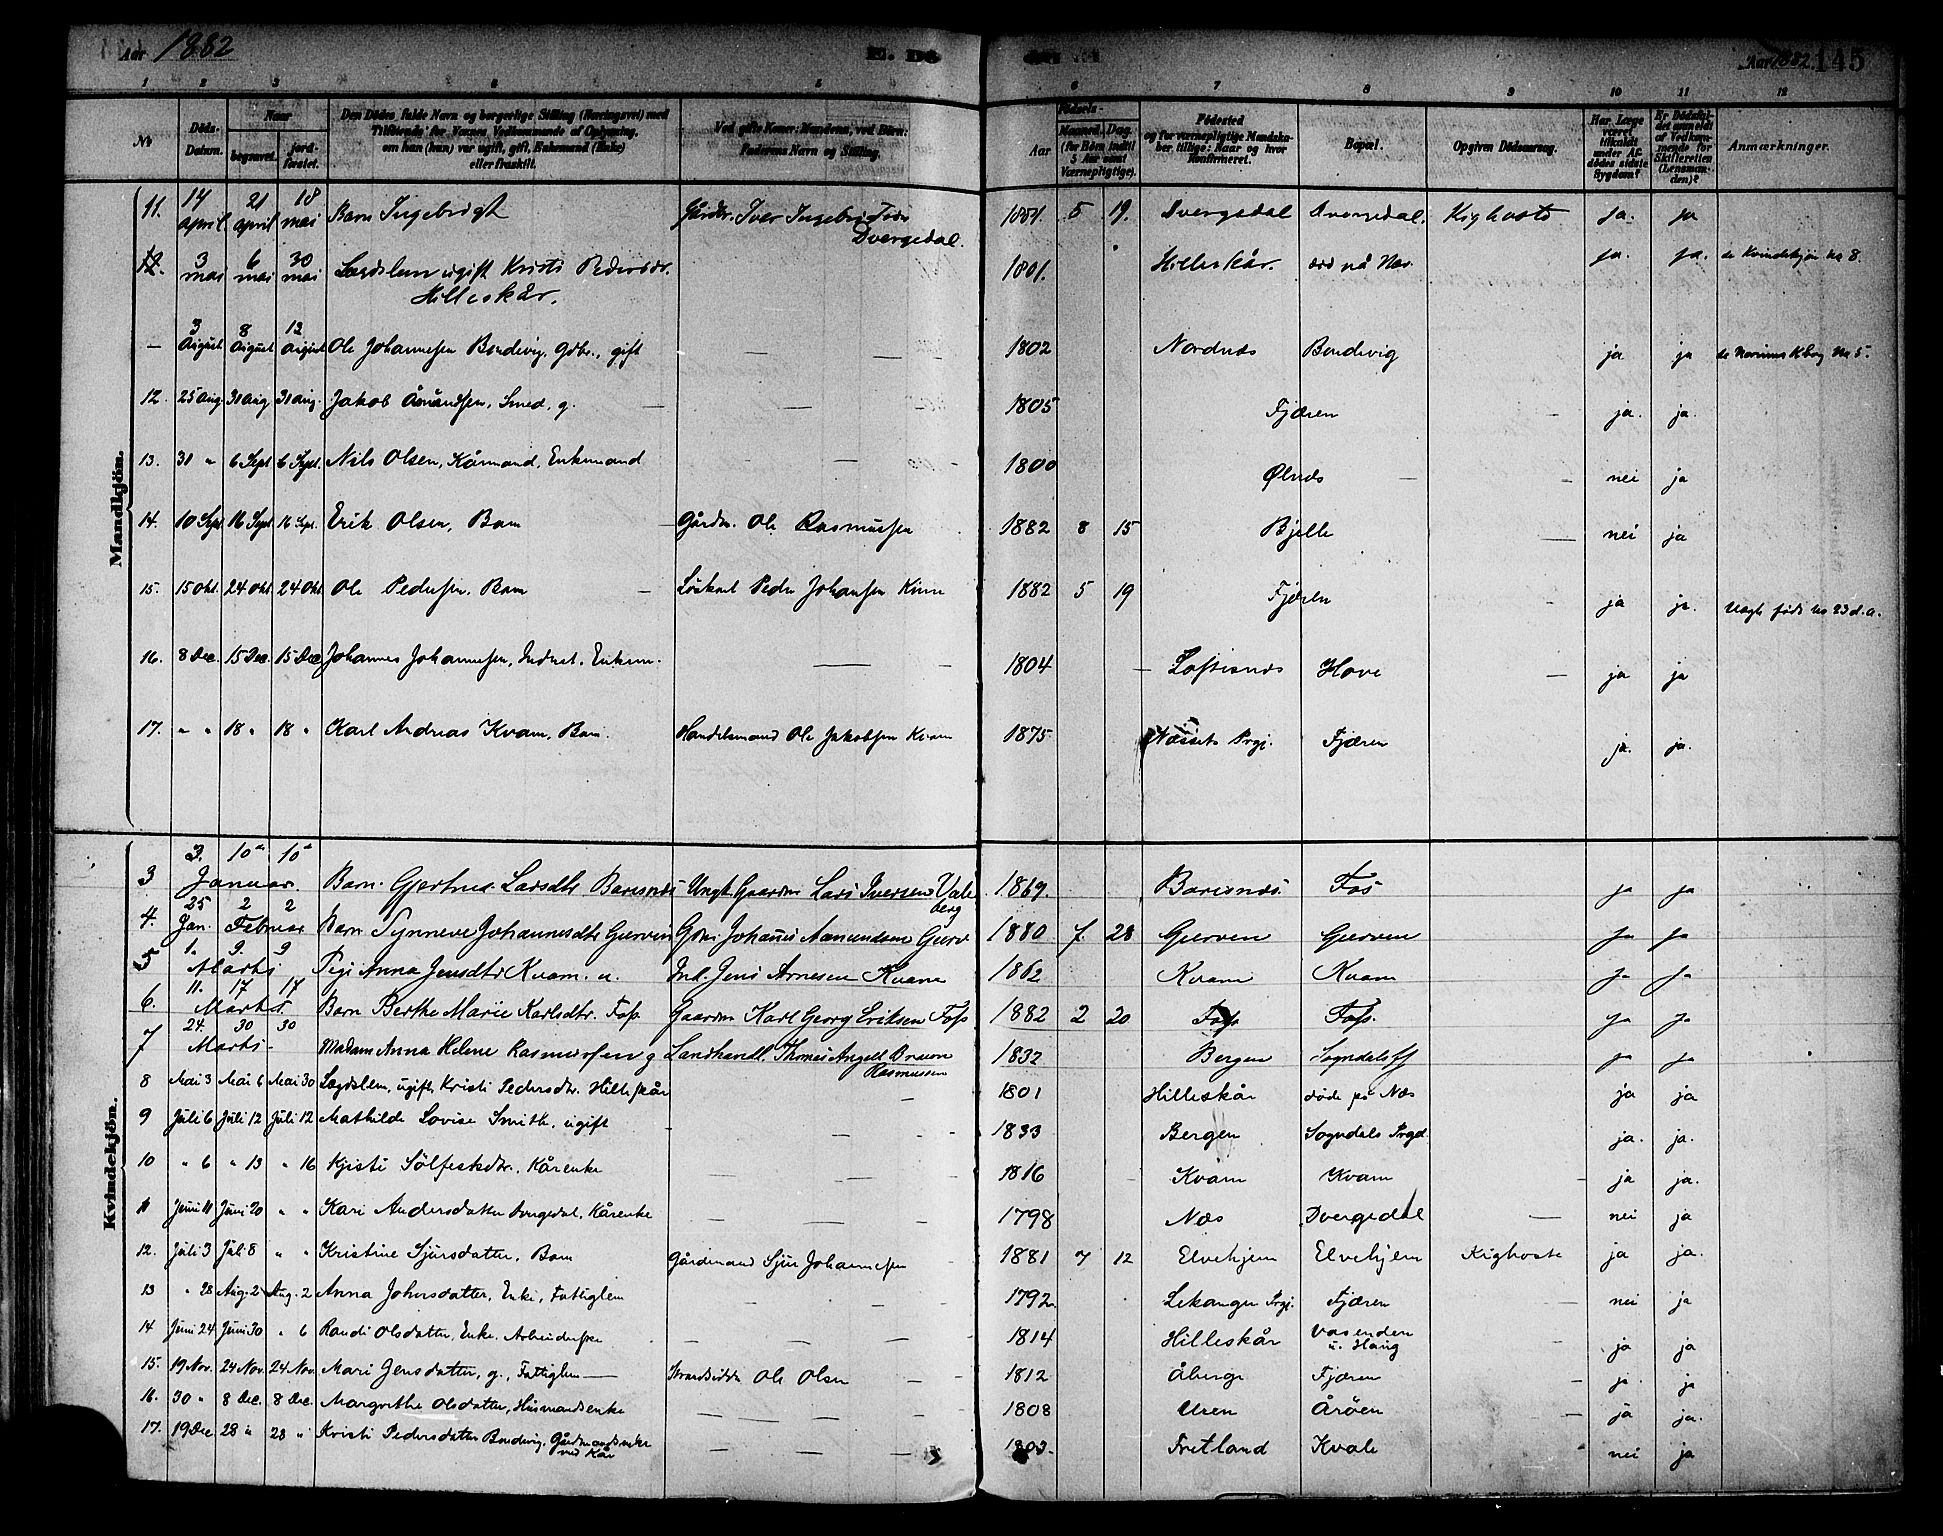 Aar 1882
Aar 1882. 145
1 2 3 4 5 6 7 8 9 10 11 12
No
Døds-Datum.
Naar
begravet. jord-fæstet.
Den Dødes fulde Navn og borgerlige Stilling (Næringsvei) med Tilføiende for Voxnes Vedkommende af Oplysning, om han (hun) var ugift, gift, Enkemand (Enke) eller fraskilt.
Ved gifte Koner: Mandens, ved Börn: Faderens Navn og Stilling.
Födsels-
Aar
Maaned. Dag.
(for Börn indtil 5 Aar samt Værnepligtige).
Födested og for værnepligtige Mandskaber tillige: Naar og hvor Konfirmeret.
Bopæl.
Opgiven Dödsaarsag.
Har Læge været tilkaldt under Afdødes sidste Sygdom?
Er Dödsfaldet anmeldt af Vedkommende for Skifteretten (Lensmanden)?
Anmærkninger.
Mandkjön.
11. 14 april 21 april 18 mai Barn Ingebrigt Gårdbr. Iver Ingebrigtsen Dvergedal. 1881. 5 19. Dvergedal Dvergedal. Kighoste ja. ja
12. 3 mai 6 mai 30 mai Lægdslem ugift Kristi Pedersdr. Hilleskår. 1801. Hilleskår. død på Næs. ja. ja. se Kvindekjön no 8.
— 3 August 8 August 12 August Ole Johannessen Bondevig, Gdbr., gift — — 1802 Nordnæs Bondevig ja ja se Norums Kbog No 5.
12. 25 Aug. 31 Aug 31 Aug. Jakob Åmundsen, Smed, g. — — 1805 Fjæren ja. ja.
13. 31 " 6 Sept 6 Sept. Nils Olsen, Kårmand, Enkemand — — 1800 Ølnæs nei ja
14. 10 Sept 16 Sept 16 Sept. Erik Olsen, Barn — Gårdm. Ole Rasmussen 1882 8 15 Bjelle — nei ja
15. 15 Okt. 24 Okt 24 Okt Ole Pedersen, Barn — Løskarl Peder Johansen 1882 5 19 Fjæren ja ja. Uægte født No 23 d. a.
16. 8 Dec. 15 Dec. 15 Dec Johannes Johannessen, Inderst, Enkem. — — 1804 — Loftesnæs Hove — ja ja
17. " " 18 " 18 " Karl Andreas Kvam, Barn. Handelsmand Ole Jakobsen Kvam 1875 Næssets Prgj. Fjæren ja. ja.
Kvindekjön.
3 3. 10de 10de Januar. Barn Gjertrud Larsdtr Barsnæs Ungk. Gaardm Lars Iversen Valeberg 1869. Barsnæs Fos ja ja
4. 25 Jan. 2 2 Februar Barn Synneve Johannesdtr Gurven Gbr. Johanes Aamundsen Gurv 1880 7. 28 Gurven Gurven ja ja
5 1. 9. 9 Marts Pige Anna Jensdtr Kvam. u. Ind. Jens Arnesen Kvam 1862 Kvam Kvam ja ja
6. 11. 17 17 Marts Barn Berthe Marie Karlsdtr. Foss Gaardm Karl Georg Eriksen Foss 1882 2 20 Foss Foss. ja ja
7 24. 30 30 Marts Madam Anna Helene Rasmussen g Landhandl. Thomas Angell Bruun Rasmussen 1832 Bergen Sogndalsfj ja ja
8 Mai 3 Mai 6 Mai 30 Lægdslem, ugift, Kristi Pedersdtr. Hilleskår — 1801 Hilleskår døde på Næs ja ja
9 Juli 6 Juli 12 Juli 12 Mathilde Lovise Smith, ugift — — 1833 Bergen Sogndals Prgd. ja. ja.
10 " 6 " 13 " 16 Kjisti Sölfestsdtr., Kårenke — — 1816 Kvam Kvam ja ja.
11 Juni 11 Juni 20 " " Kari Andersdatter Dvergedal, Kårenke — — 1798 Næs Dvergedal — nei ja
12. Juli 3 Juli 8 " " Kristine Sjursdatter, Barn Gårdmand Sjur Johannessen 1881 7 12 Elvehjem Elvehjem Kighoste ja ja.
13 " 28 Aug. 2 Aug. 2 Anna Johnsdatter, Enke, Fattiglem — — 1792. Lekanger Prgj. Fjæren nei ja
14 Juni 24 Juni 30 " 6 Randi Olsdatter, Enke, Arbeiderske — — 1814 Hilleskår Vasenden u. Haug ja ja
15. 19 Nov. 24 Nov. 24 Nov. Mari Jensdatter, g., Fattiglem — Strandsidder Ole Olsen 1812 Åberge Fjæren ja. ja
16. 30 " 8 Dec. 8 Dec. Margrethe Olsdatter, Husmandsenke — — 1808 Uren Årøen ja ja.
17. 19 Dec 28 " 28 " Kristi Pedersdatter Bondevig, Gårdmandsenke med Kår — — 1803. Fretland Kvale nei ja